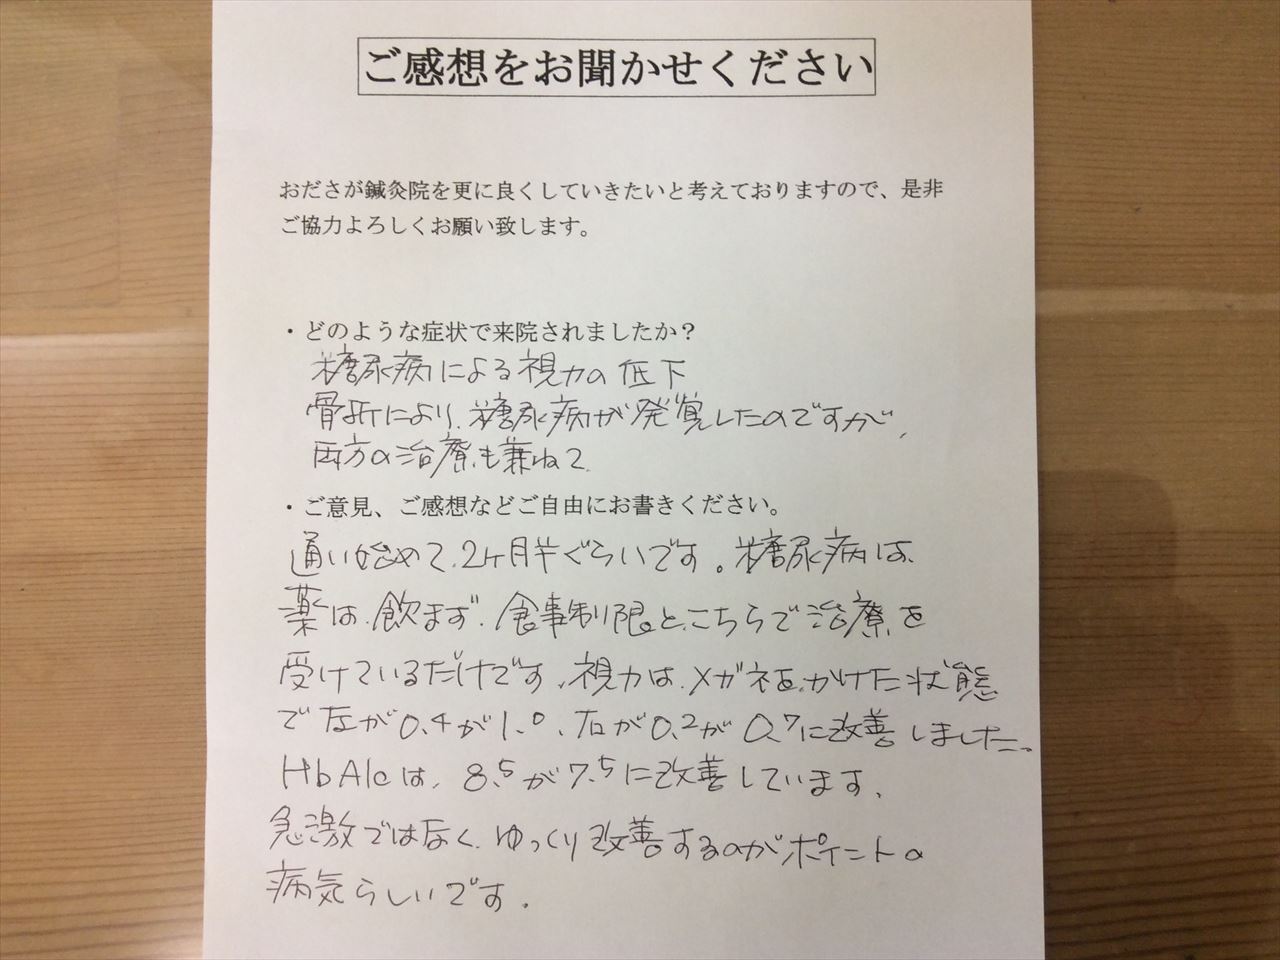 ご感想をお聞かせください
おださが鍼灸院を更に良くしていきたいと考えておりますので、是非
ご協力よろしくお願い致します。
・どのような症状で来院されましたか？
糖尿病による視力の低下
骨折により、糖尿病が発覚したのですが、
両方の治療も兼ねて
・ご意見、ご感想などご自由にお書きください。
通い始めて、2ヶ月半ぐらいです。糖尿病は、
薬は、飲まず、食事制限と、こちらで治療を
受けているだけです。視力は、メガネをかけた状態
で左が0.4が1.0、右が0.2が0.7に改善しました。
HbA1cは、8.5が7.5に改善しています。
急激ではなく、ゆっくり改善するのがポイントの
病気らしいです。